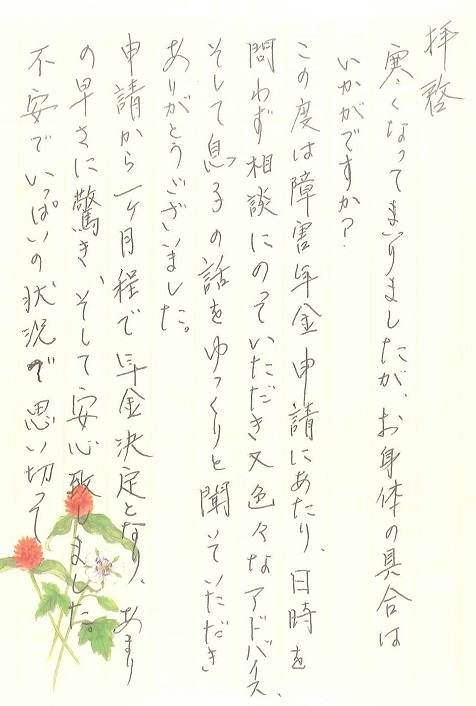 拝啓
寒くなってまいりましたが、お身体の具合は
いかがですか?
この度は障害年金申請にあたり、日時を
問わず相談にのっていただき又色々なアドバイス、
そして息っ子の話をゆっくりと聞いていただき
ありがとうございました。
申請から一ヶ月程で年金決定となり、あまり
の早さに驚き、そして安心致しました。
不安でいっぱいの状況で思い切って